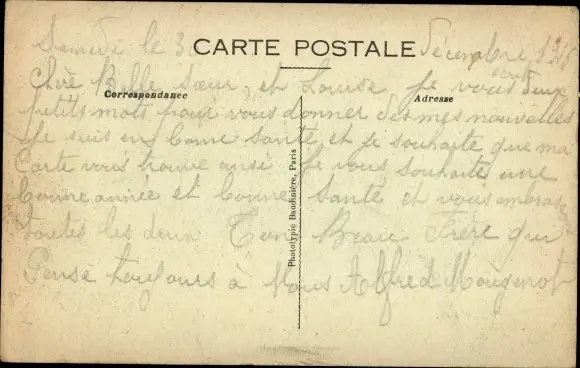 CARTE POSTALE
Samedi le 30 décembre 1916
Chère Belle Sœur, et Louise je vous écrit deux
Correspondance
Adresse
petits mots pour vous donner des mes nouvelles
je suis en bonne santé, et je souhaite que ma
Carte vous trouve ansi je vous souhaite une
bonne année et bonne santé et vous embrasse
toutes les deux Ton Beau Frère qui
Pense toujours à Vous Alfred Mougenot
Phototypie Baudinière, Paris